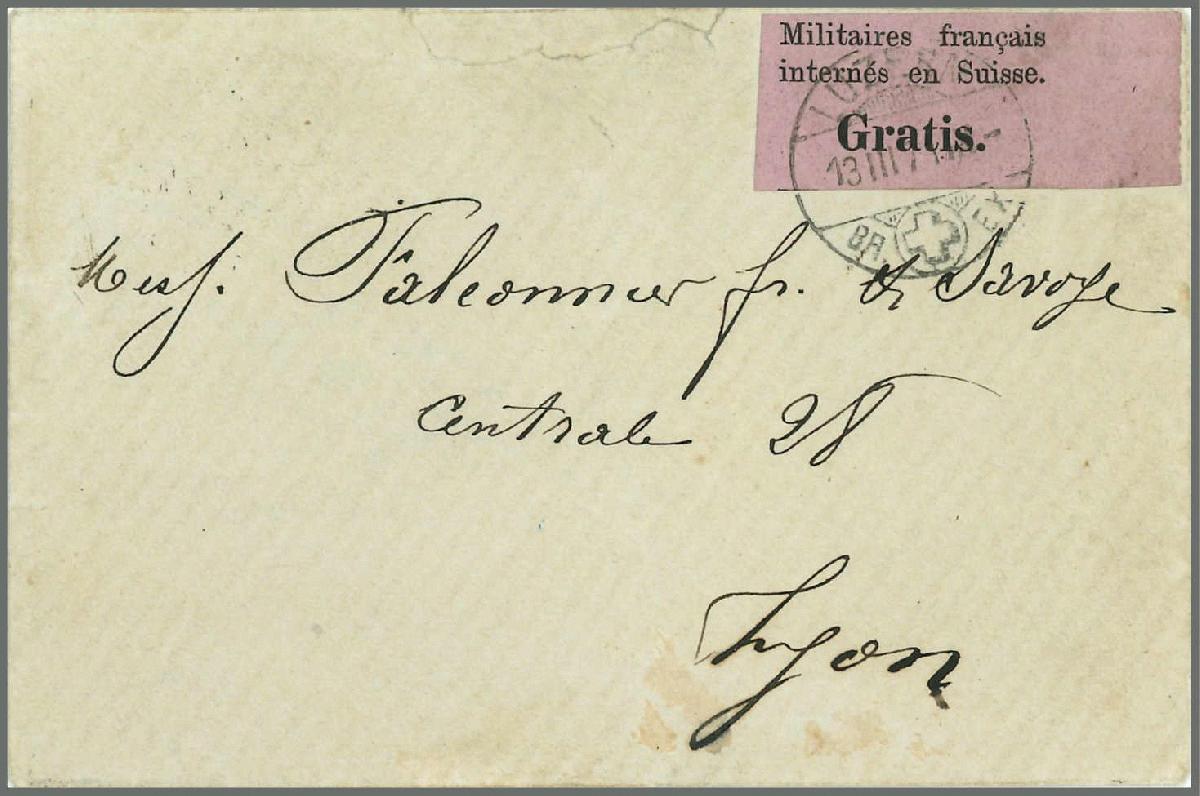 Militaires français
internés en Suisse.
Gratis.
LUZERN
13 III 7
BR. EX
Mess. Falconnier fr. & Savoye
Centrale 28
Lyon